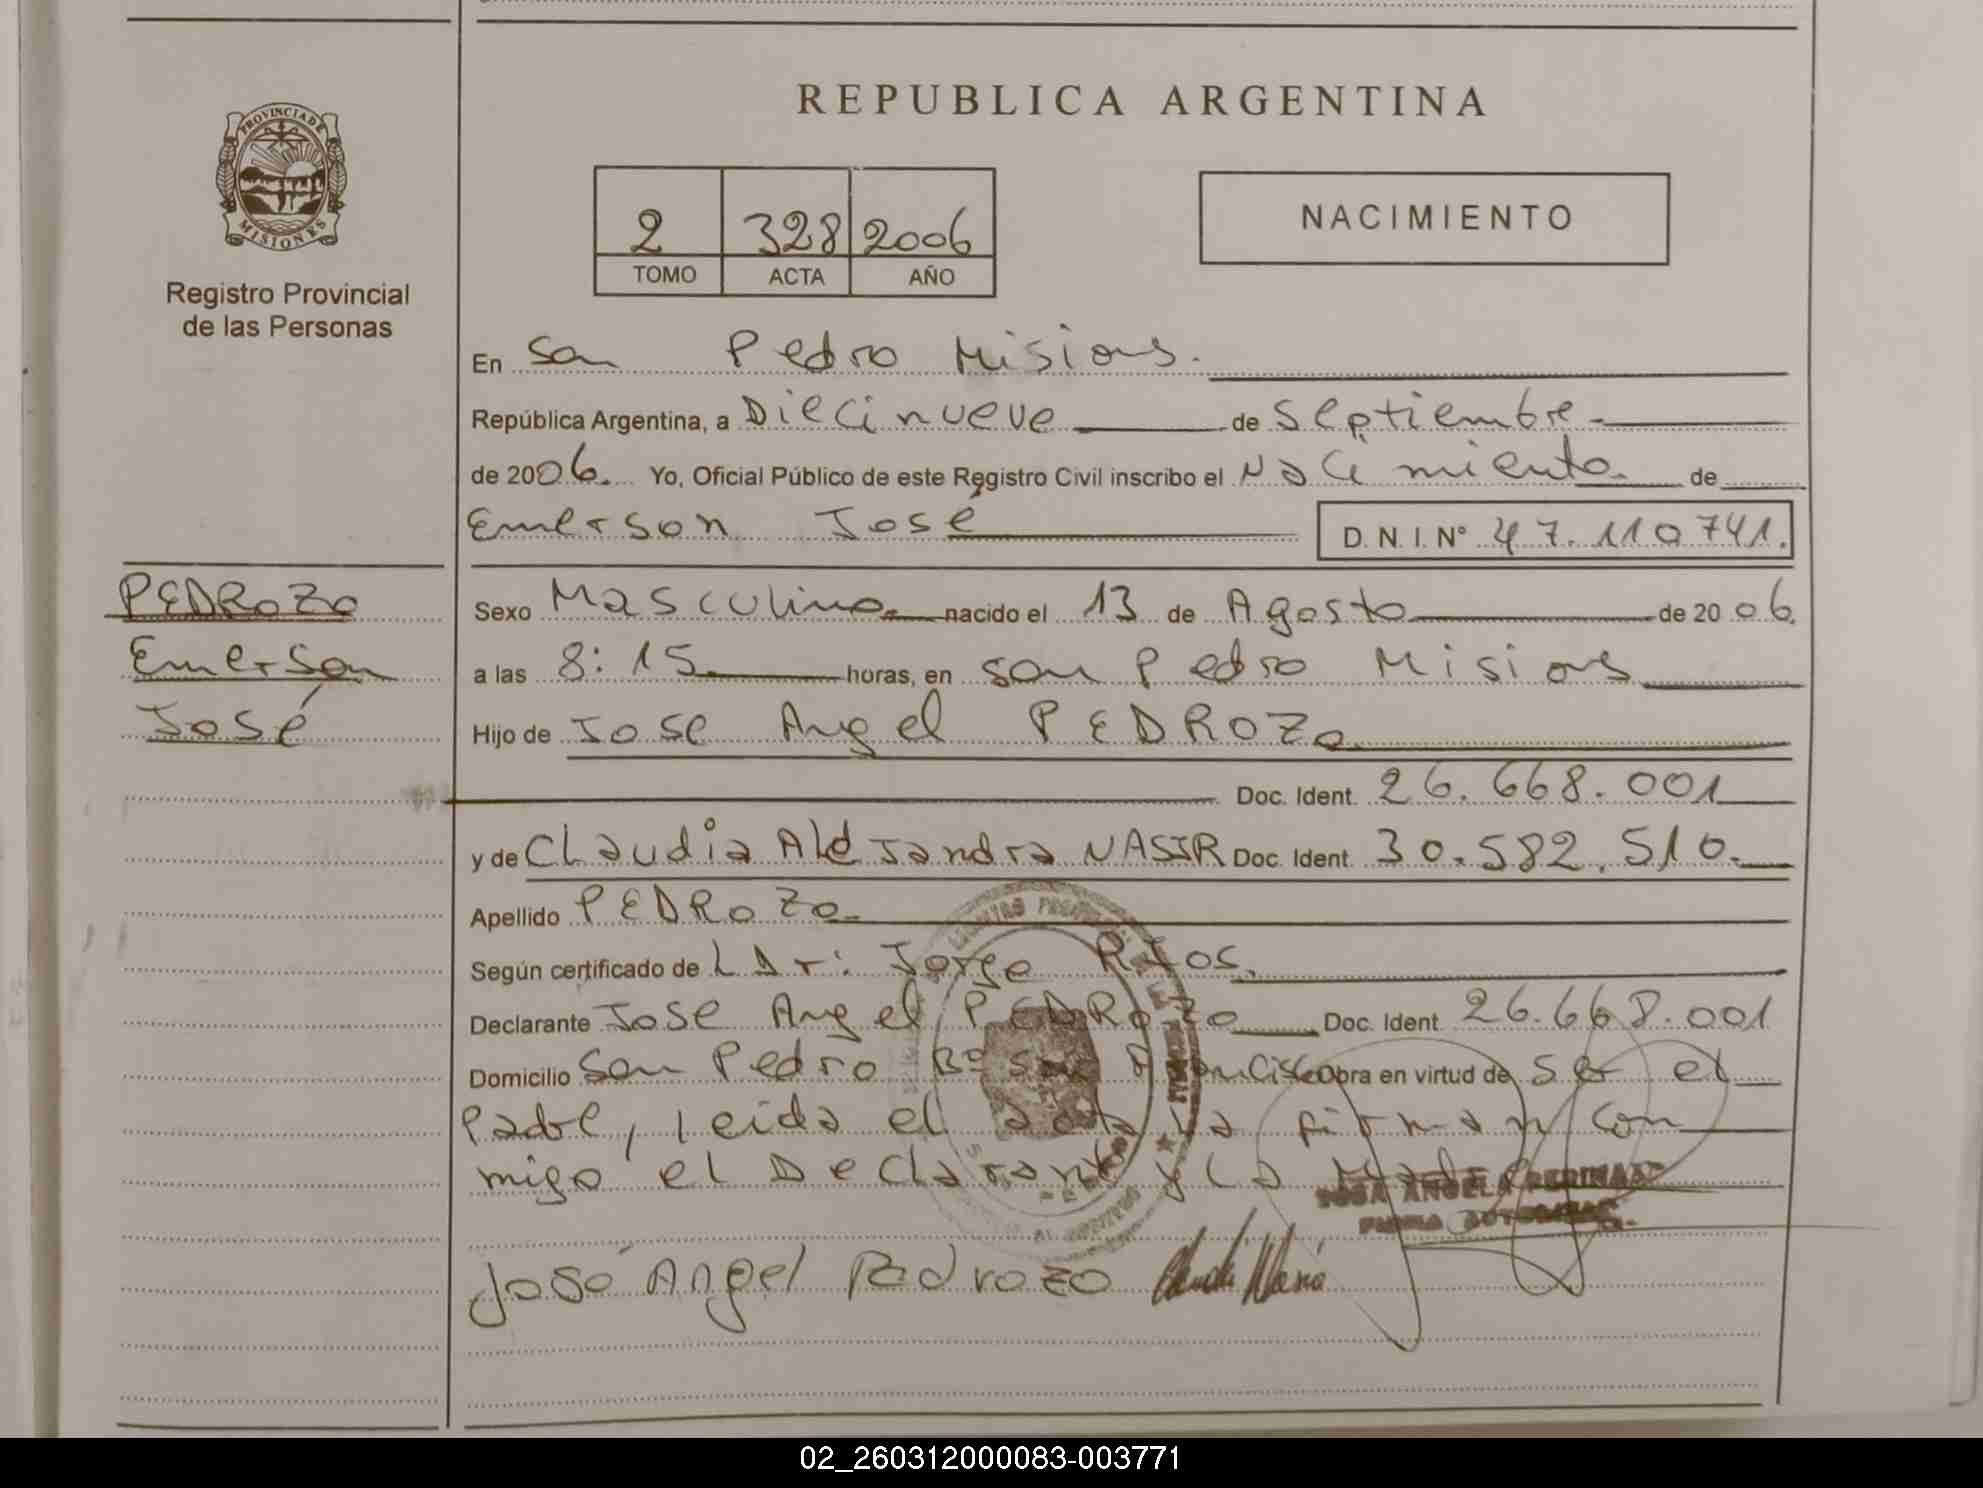 REPUBLICA ARGENTINA
PROVINCIA DE
MISIONES
Registro Provincial
de las Personas
2 328 2006
TOMO ACTA AÑO
NACIMIENTO
En San Pedro Misiones.
República Argentina, a Diecinueve de Septiembre
de 2006. Yo, Oficial Público de este Registro Civil inscribo el Nacimiento de
Emerson José D.N.I. N° 47.110741.
PEDROZO
Emerson
José
Sexo Masculino nacido el 13 de Agosto de 2006.
a las 8:15 horas, en San Pedro Misiones
Hijo de Jose Angel PEDROZO
Doc. Ident. 26.668.001
y de Claudia Alejandra NASIR Doc. Ident. 30.582.510.
Apellido PEDROZO
Según certificado de L Dr: Jorge Rjos.
Declarante Jose Angel PEDROZO Doc. Ident. 26.668.001
Domicilio San Pedro Bº San Francisco Obra en virtud de ser el
Padre, leida el acta la firman con
migo el Declarante y la Madre
ROSA ANGELA
FIRMA AUTORIZADA
José Angel Pedrozo
02_260312000083-003771